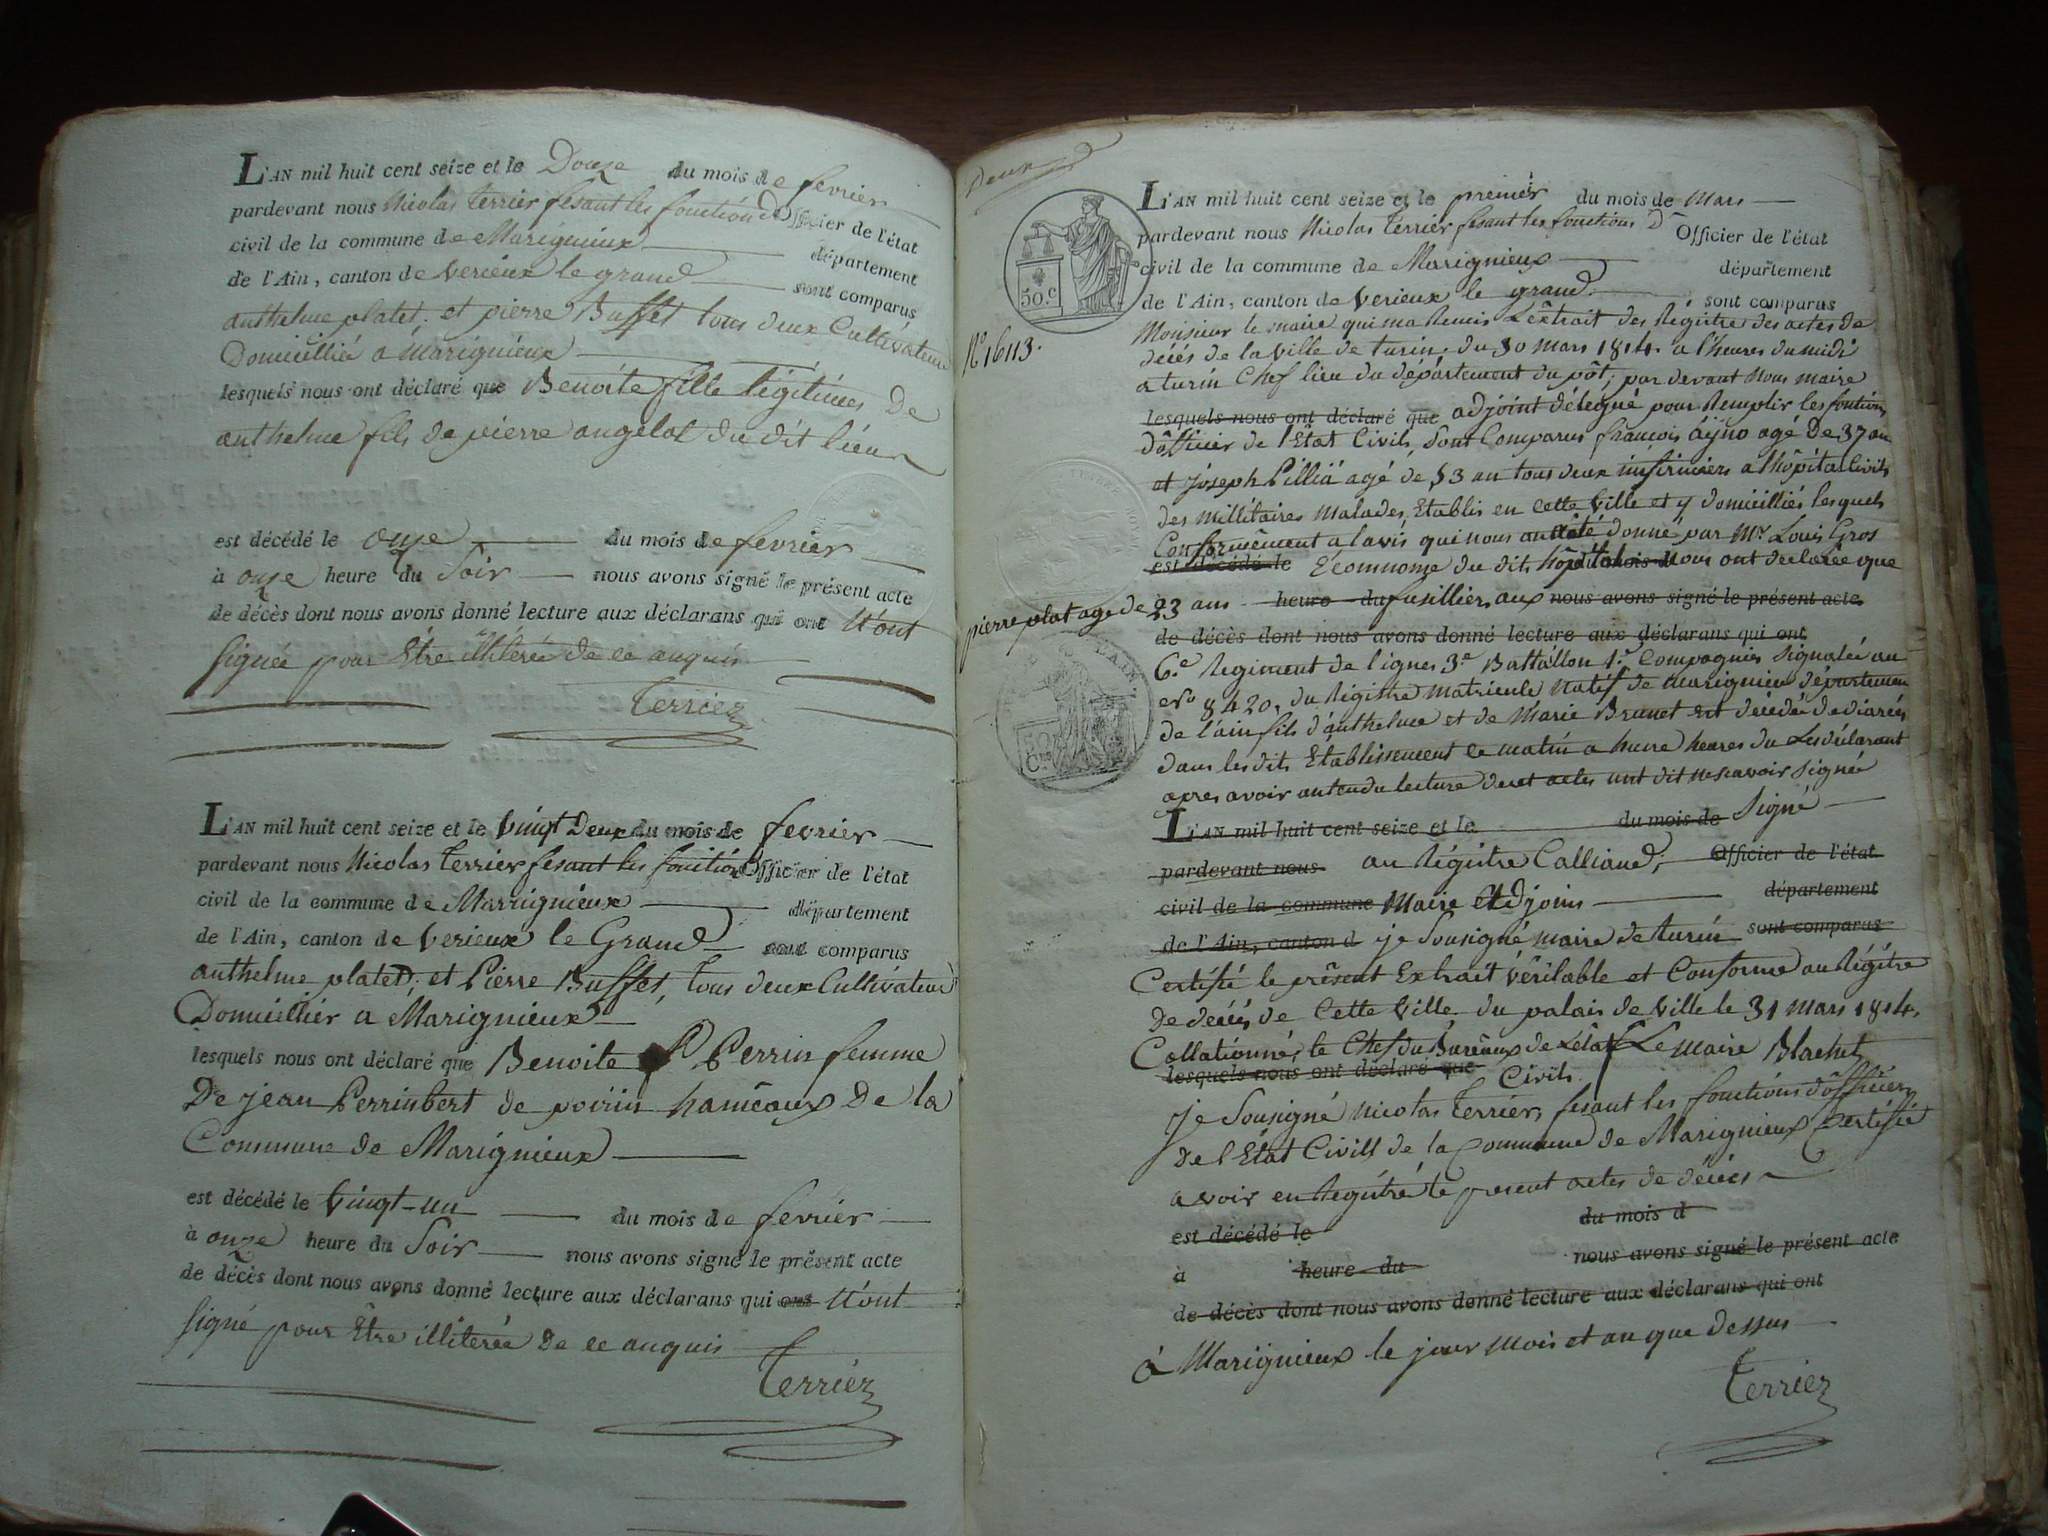 L'AN mil huit cent seize et le Douze du mois de fevrier
pardevant nous Nicolas terrier fesant les fonction d Officier de l'état
civil de la commune de Marignieux département
de l'Ain, canton de verieux le grand sont comparus
anthelme platet. et pierre Buffet tous deux Cultivateur
Domicillié a marignieux
lesquels nous ont déclaré que Benoite fille légitimes De
anthelme fils de pierre angelot du dit lieux
est décédé le onze du mois de fevrier
à onze heure du Soir nous avons signé le présent acte
de décès dont nous avons donné lecture aux déclarans qui ont n'ont
signée pour Etre illiterée de ce anquis
Terrier
L'AN mil huit cent seize et le vingt Deux du mois de fevrier
pardevant nous Nicolas terrier fesant les fonction Officier de l'état
civil de la commune de Marignieux département
de l'Ain, canton de verieux le Grand sont comparus
anthelme platet, et Pierre Buffet, tous deux Cultivateur
Domicillier a Marignieux
lesquels nous ont déclaré que Benoite Perrin femme
De jean Perrinbert de poirin hameaux De la
Commune de Marignieux
est décédé le vingt-un du mois de fevrier
à onze heure du Soir nous avons signé le présent acte
de décès dont nous avons donné lecture aux déclarans qui ont n'ont
signé pour Etre illiterée De ce anquis
Terrier
Deux
50.c
N° 16113.
L'AN mil huit cent seize et le premier du mois de Mars
pardevant nous Nicolas terrier fesant les fonctions d' Officier de l'état
civil de la commune de Marignieux département
de l'Ain, canton de verieux le grand sont comparus
Monsieur le maire qui ma Remis L'extrait des Régistre des actes de
décés de la ville de turin. du 30 mars 1814. a l'heures du midi
a turin Chef lieu du département du pôt; par devant Nous maire
lesquels nous ont déclaré que adjoint délegué pour Remplir les fontions
d'officier de l'Etat Civils, Sont Comparus françois aÿno agé De 37 an
et joseph Pillia agé de 53 an tous deux infirmiers a l'hôpital Civils
des millitaires malades, Etablis en cette Ville et y domicilliés lesquels
Conformément a l'avis qui nous donné par Mr. Louis Gros
est décédé le Economme du dit hôpital Nous ont declarée que
pierre plat age de 23 ans heure du fusilliers aux nous avons signé le présent acte
de décès dont nous avons donné lecture aux déclarans qui ont
6.e Regiment de lignes 3.e Battaillon 1.e Compagnies Signalée au
No 8420, du Régistre matricule natif de marignieu departement
de l'ain fils d'anthelme et de Marie Brunet est décédé de diarée
dans les dits Etablissement ce matin a heures du Les déclarant
apres avoir entendu lecture actes ont dit ne scavoir Signée
L'AN mil huit cent seize et le du mois de Signé
pardevant nous au Régistre Calliaud; Officier de l'état
civil de la commune Maire Adjoins département
de l'Ain, canton d je Sousigné maire de turin sont comparus
Certifié le présent Extrait véritable et Conforme au Régitre
De décés de Cette Ville. du palais de Ville le 31 mars 1814.
Collationné, le Chef du Bureaux de L'état Le Maire Blachet
lesquels nous ont déclaré que Civils.
je Sousigné nicolas terrier, fesant les fonctions d'officier
De l'Etat Civils de la commune de Marignieux Certifié
avoir enRegistré le present actes de décés
est décédé le du mois d
à heure du nous avons signé le présent acte
de décès dont nous avons donné lecture aux déclarans qui ont
à Marignieux le jour mois et an que dessus
Terrier